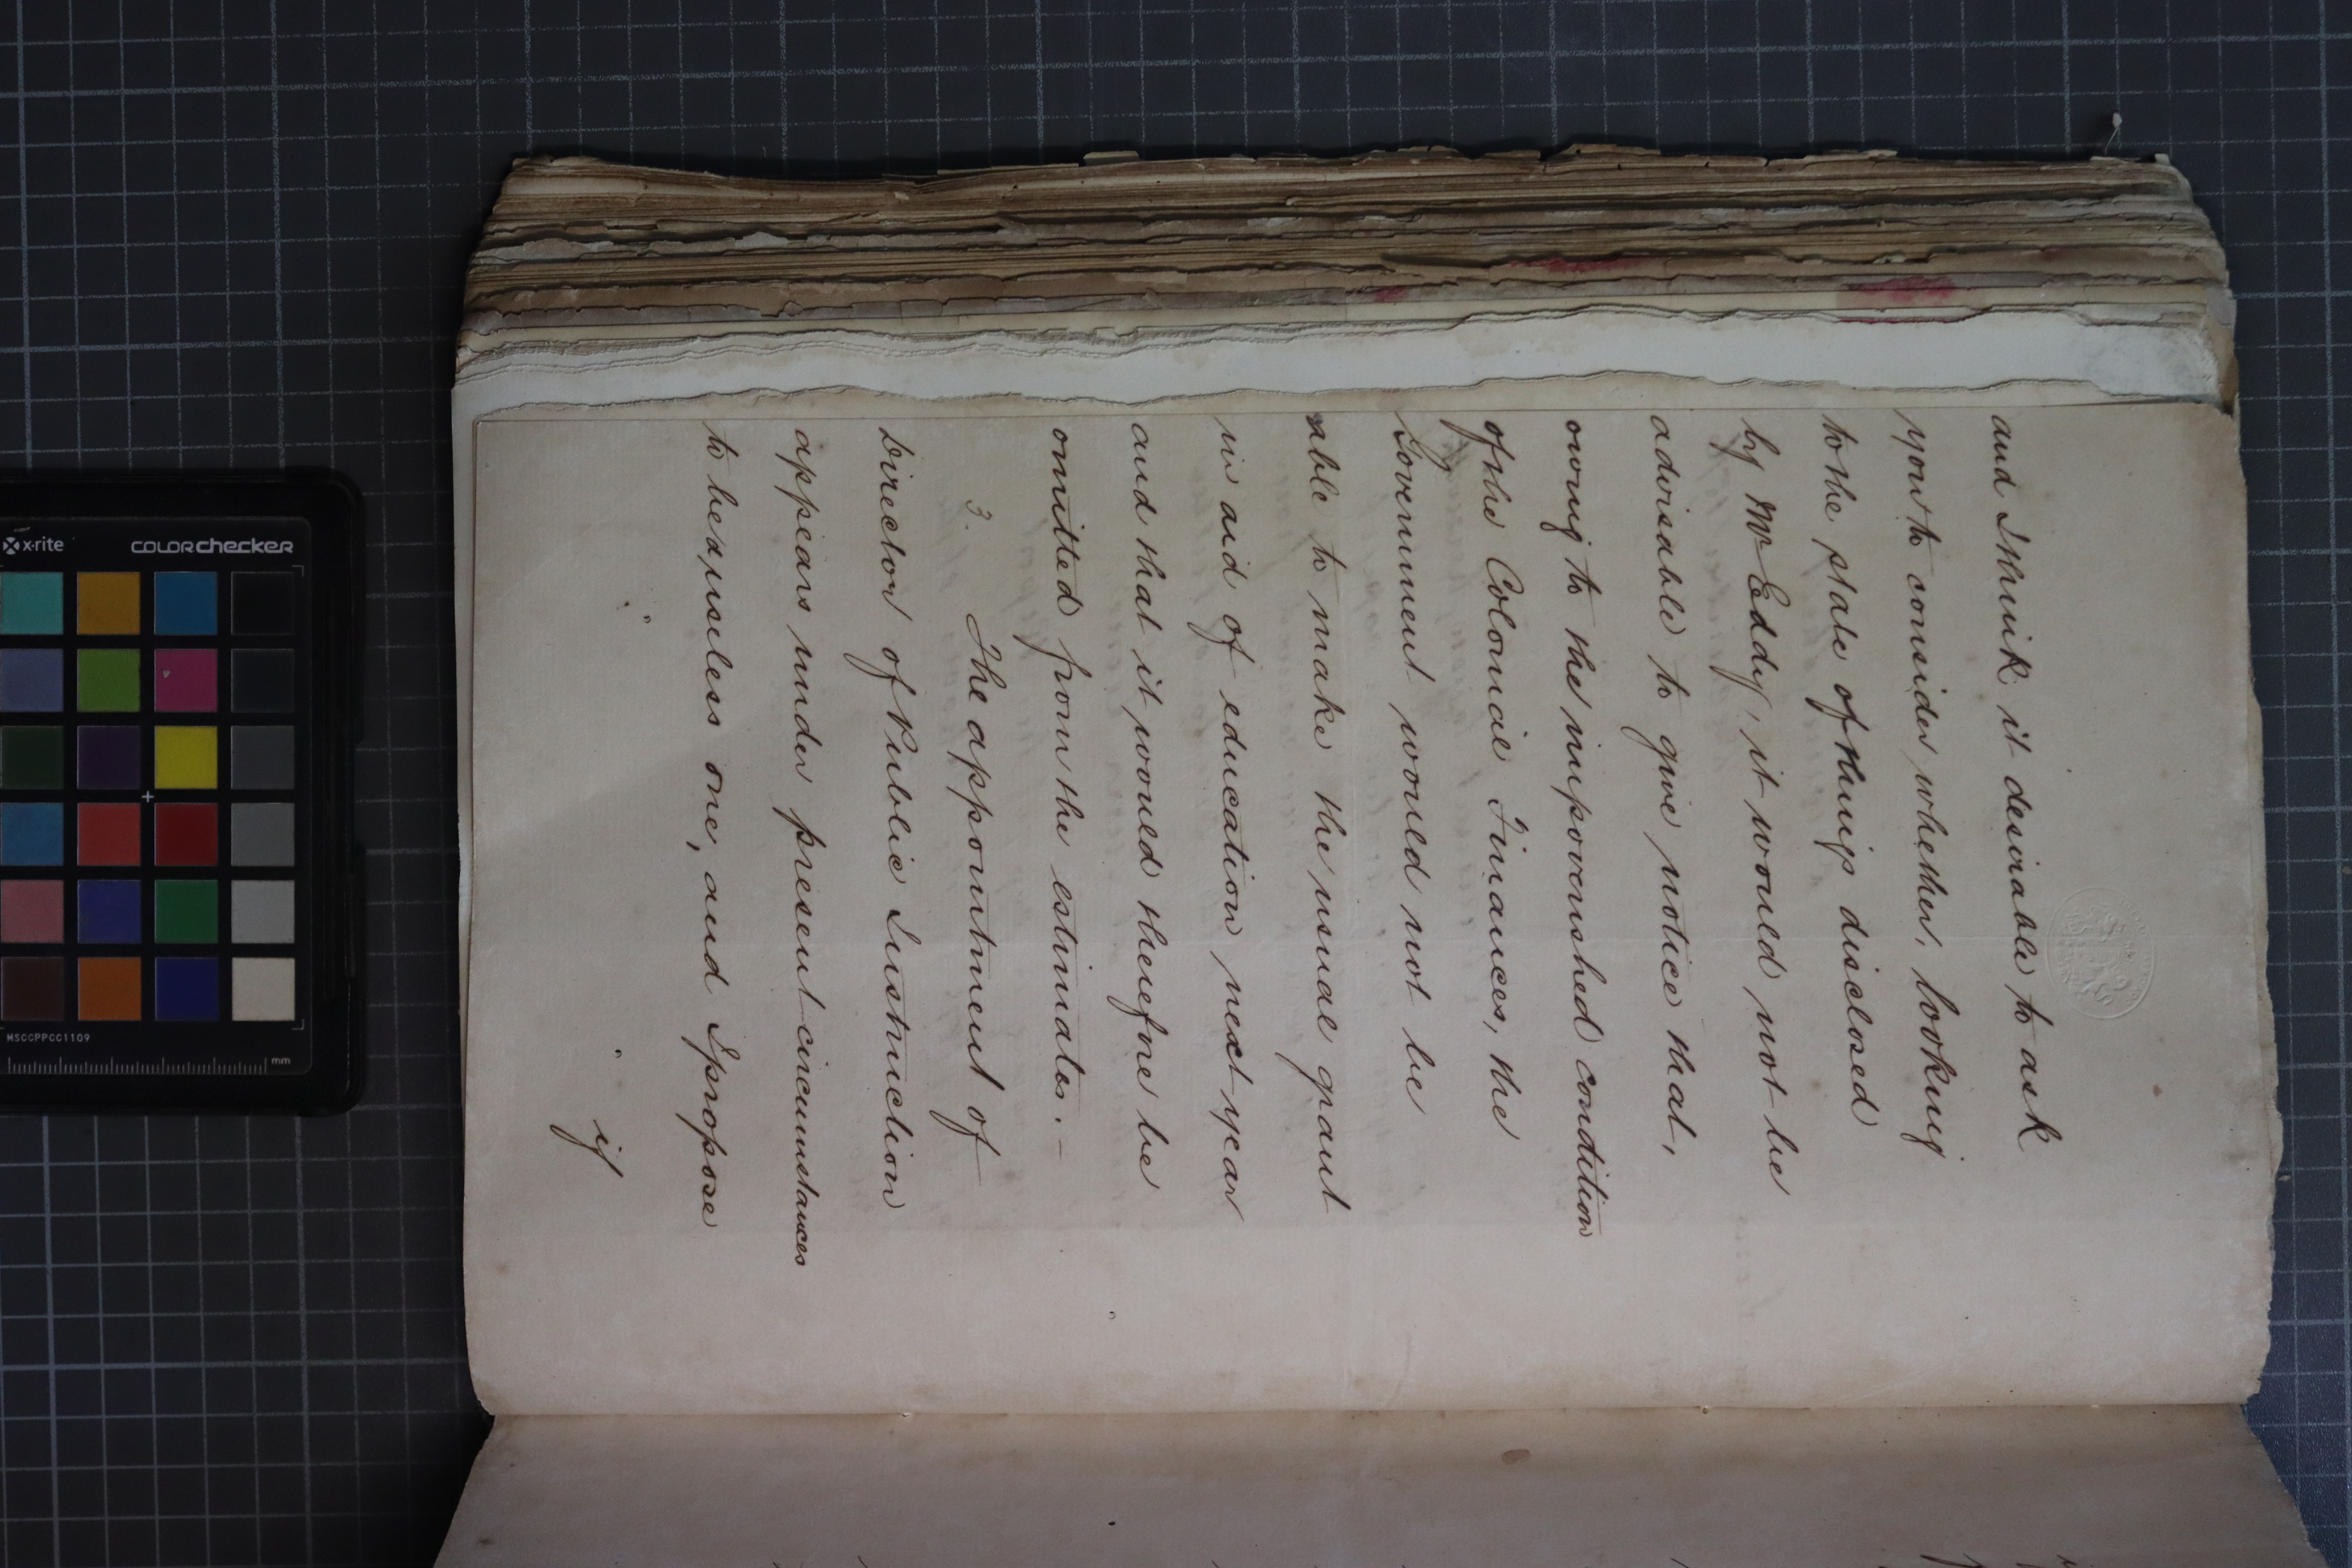 and I think it desirable to ask
you to consider whether, looking
to the state of things disclosed
by Mr Eddy, it would not be
advisable to give notice that,
owing to the impoverished condition
of the Colonial Finances, the
Government would not be
able to make the usual grant
in aid of education next year
and that it would therefore be
omitted from the estimates. –
3. The appointment of
Director of Public Instruction
appears under present circumstances
to be a useless one, and I propose
if
x·rite
COLORchecker
MSCCPPCC1109
mm